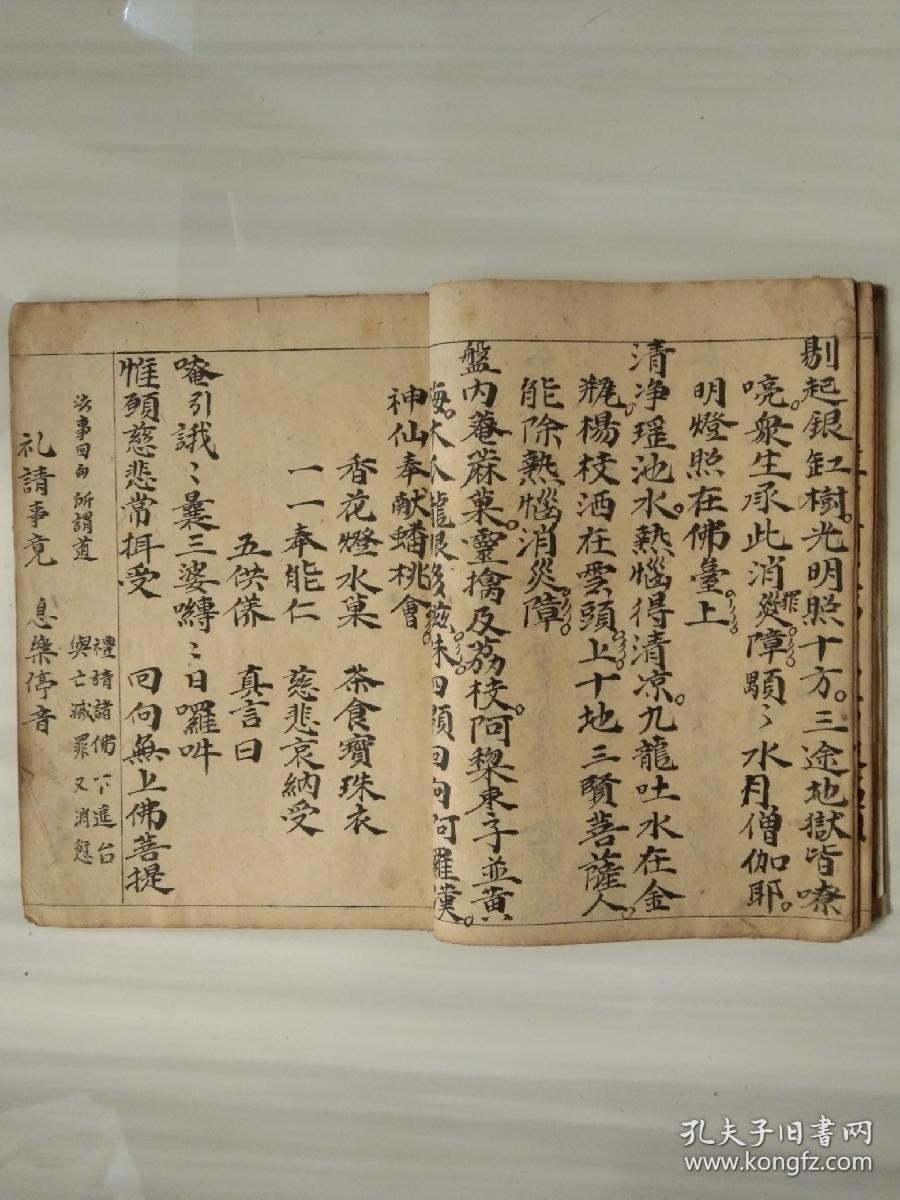 剔起銀缸樹。光明照十方。三途地獄皆嘹
喨。衆生承此消災罪障願〻水月僧伽耶。
明燈照在佛臺上
清净瑶池水。熱惱得清凉。九龍吐水在金
瓶。楊枝洒在雲頭上十地三賢菩薩人。
能除熱惱消災障。
盤内菴蔴菓。靈擒及荔枝。阿棃枣子並黄
梅。木瓜龍眼 味四願回向阿羅漢。
神仙奉献蟠桃會
香花燈水菓 茶食寶珠衣
一一奉能仁 慈悲哀納受
五供養 真言曰
唵引誐〻曩三婆嚩〻日囉吽
惟願慈悲常揖受 回向無上佛菩提
法事回向 所謂道 禮請諸佛下進台
與亡滅罪又消愆
礼請事竟 息樂停音
孔夫子旧书网
www.kongfz.com